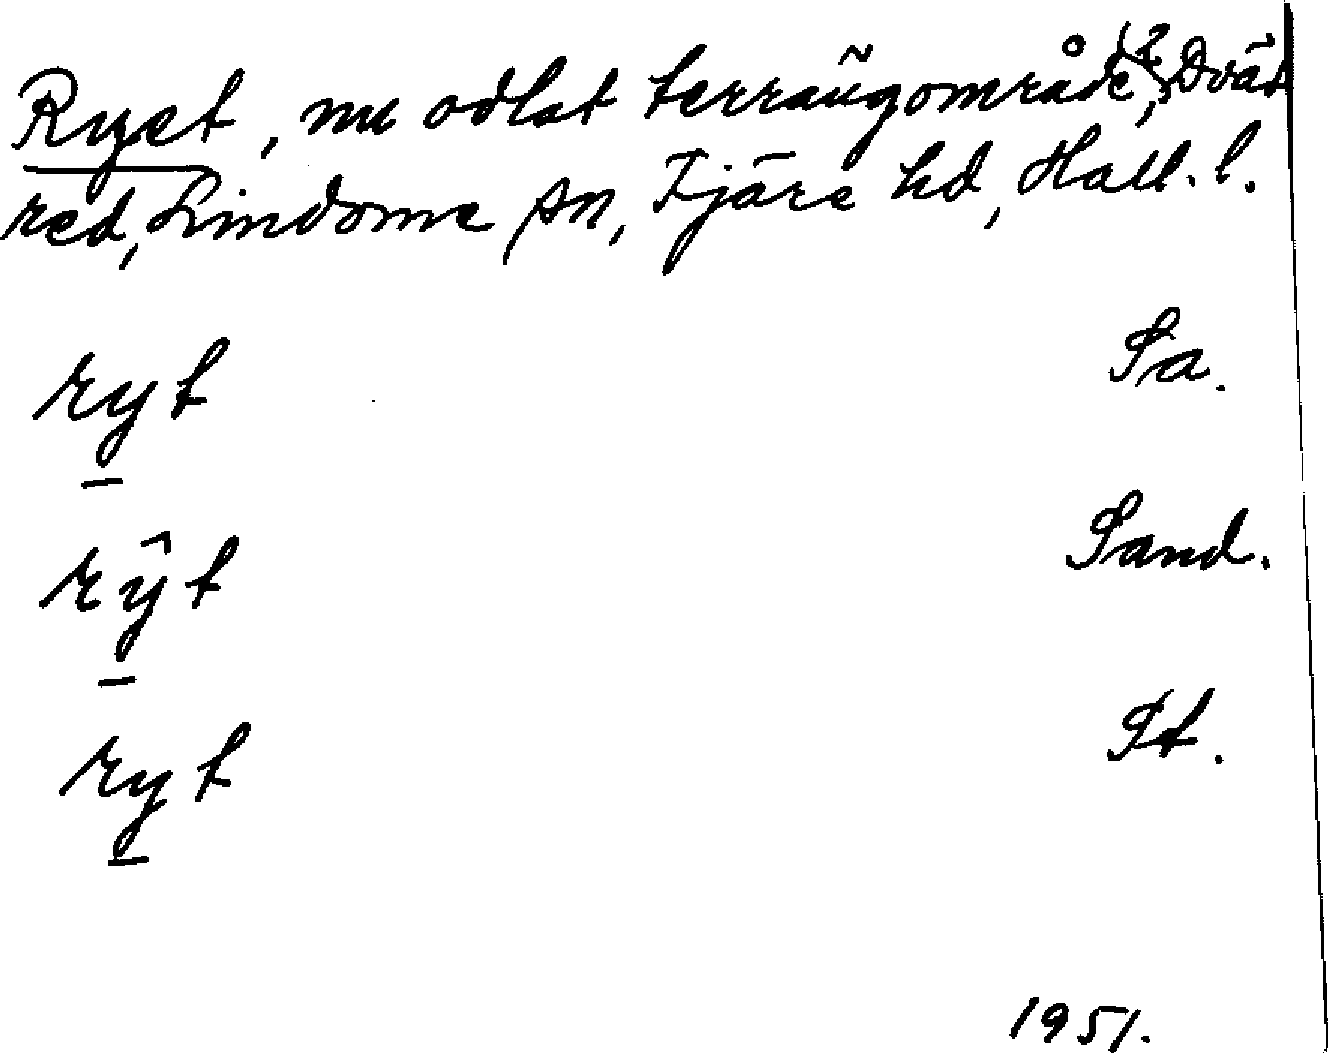 Ryet, nu odlat terrängområde, Dväred
red, Lindome sn, Fjäre hd, Hall. l.
ryt Sa.
rŷt Sand.
ryt St.
1951.